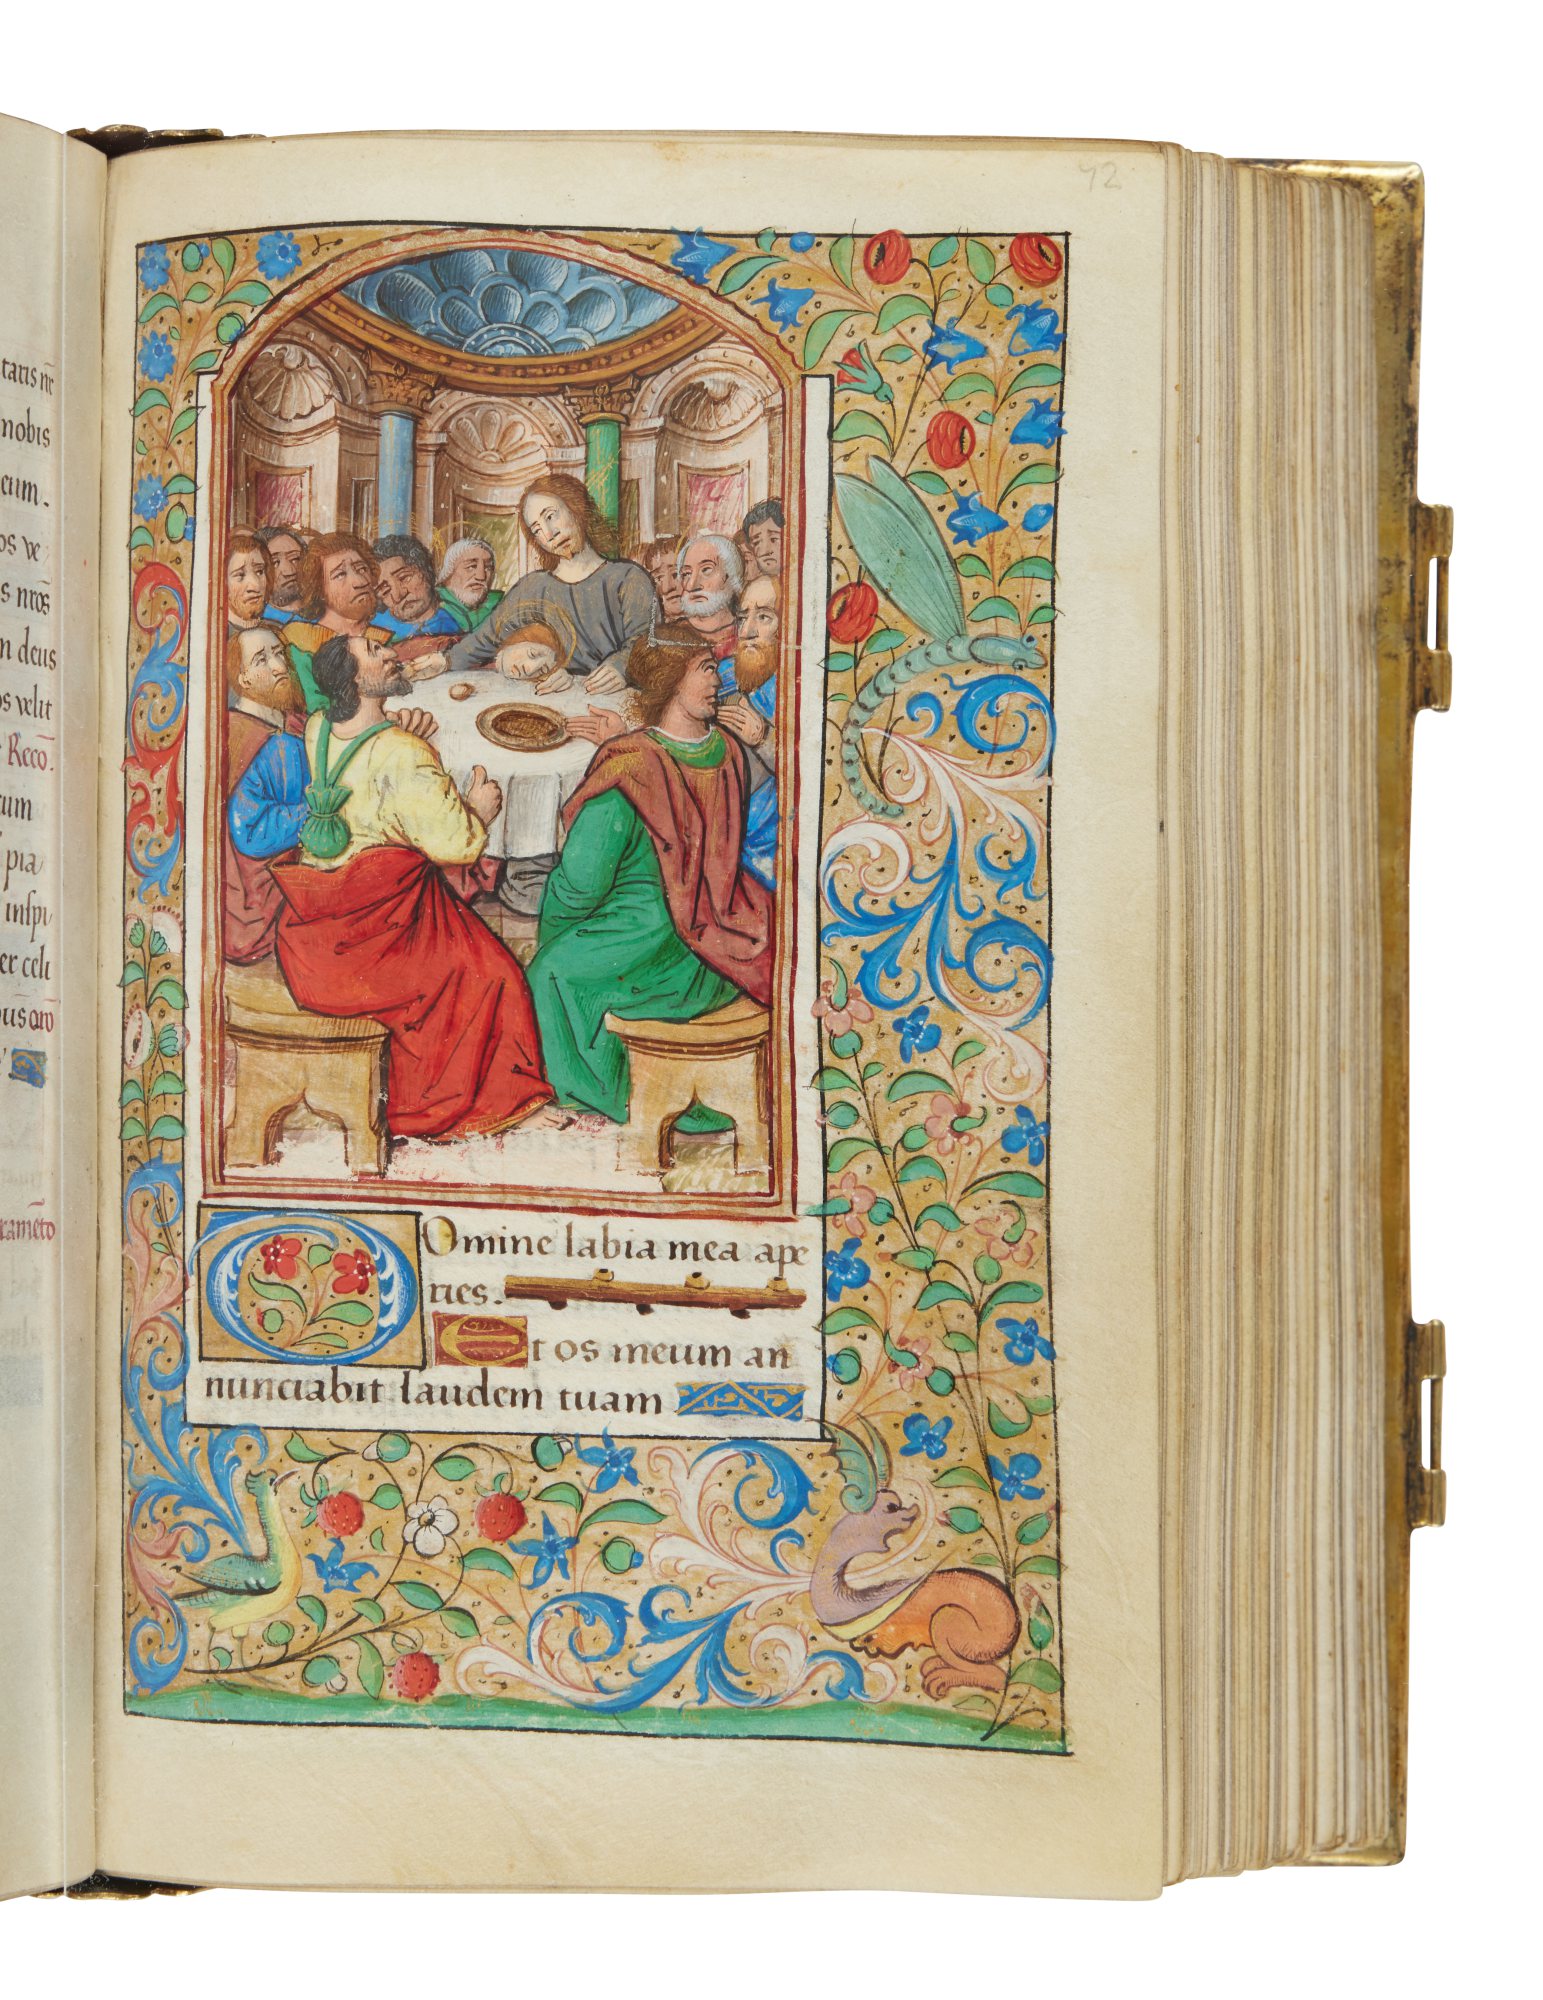 taris nr̄e
nobis
eum.
os ve
s nr̄os
m deus
os velit
Reco.
tum
pia
inspi
er celi
ous oro
rameto
42
Omine labia mea ape
ries.
Et os meum an
nunciabit laudem tuam